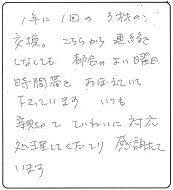 1年に1回の3枚の
交換。こちらから連絡を
しなくても都合のよい曜日
時間帯をおぼえていて
下さっています いつも
親切でていねいに対応
処理してくださり感謝して
います